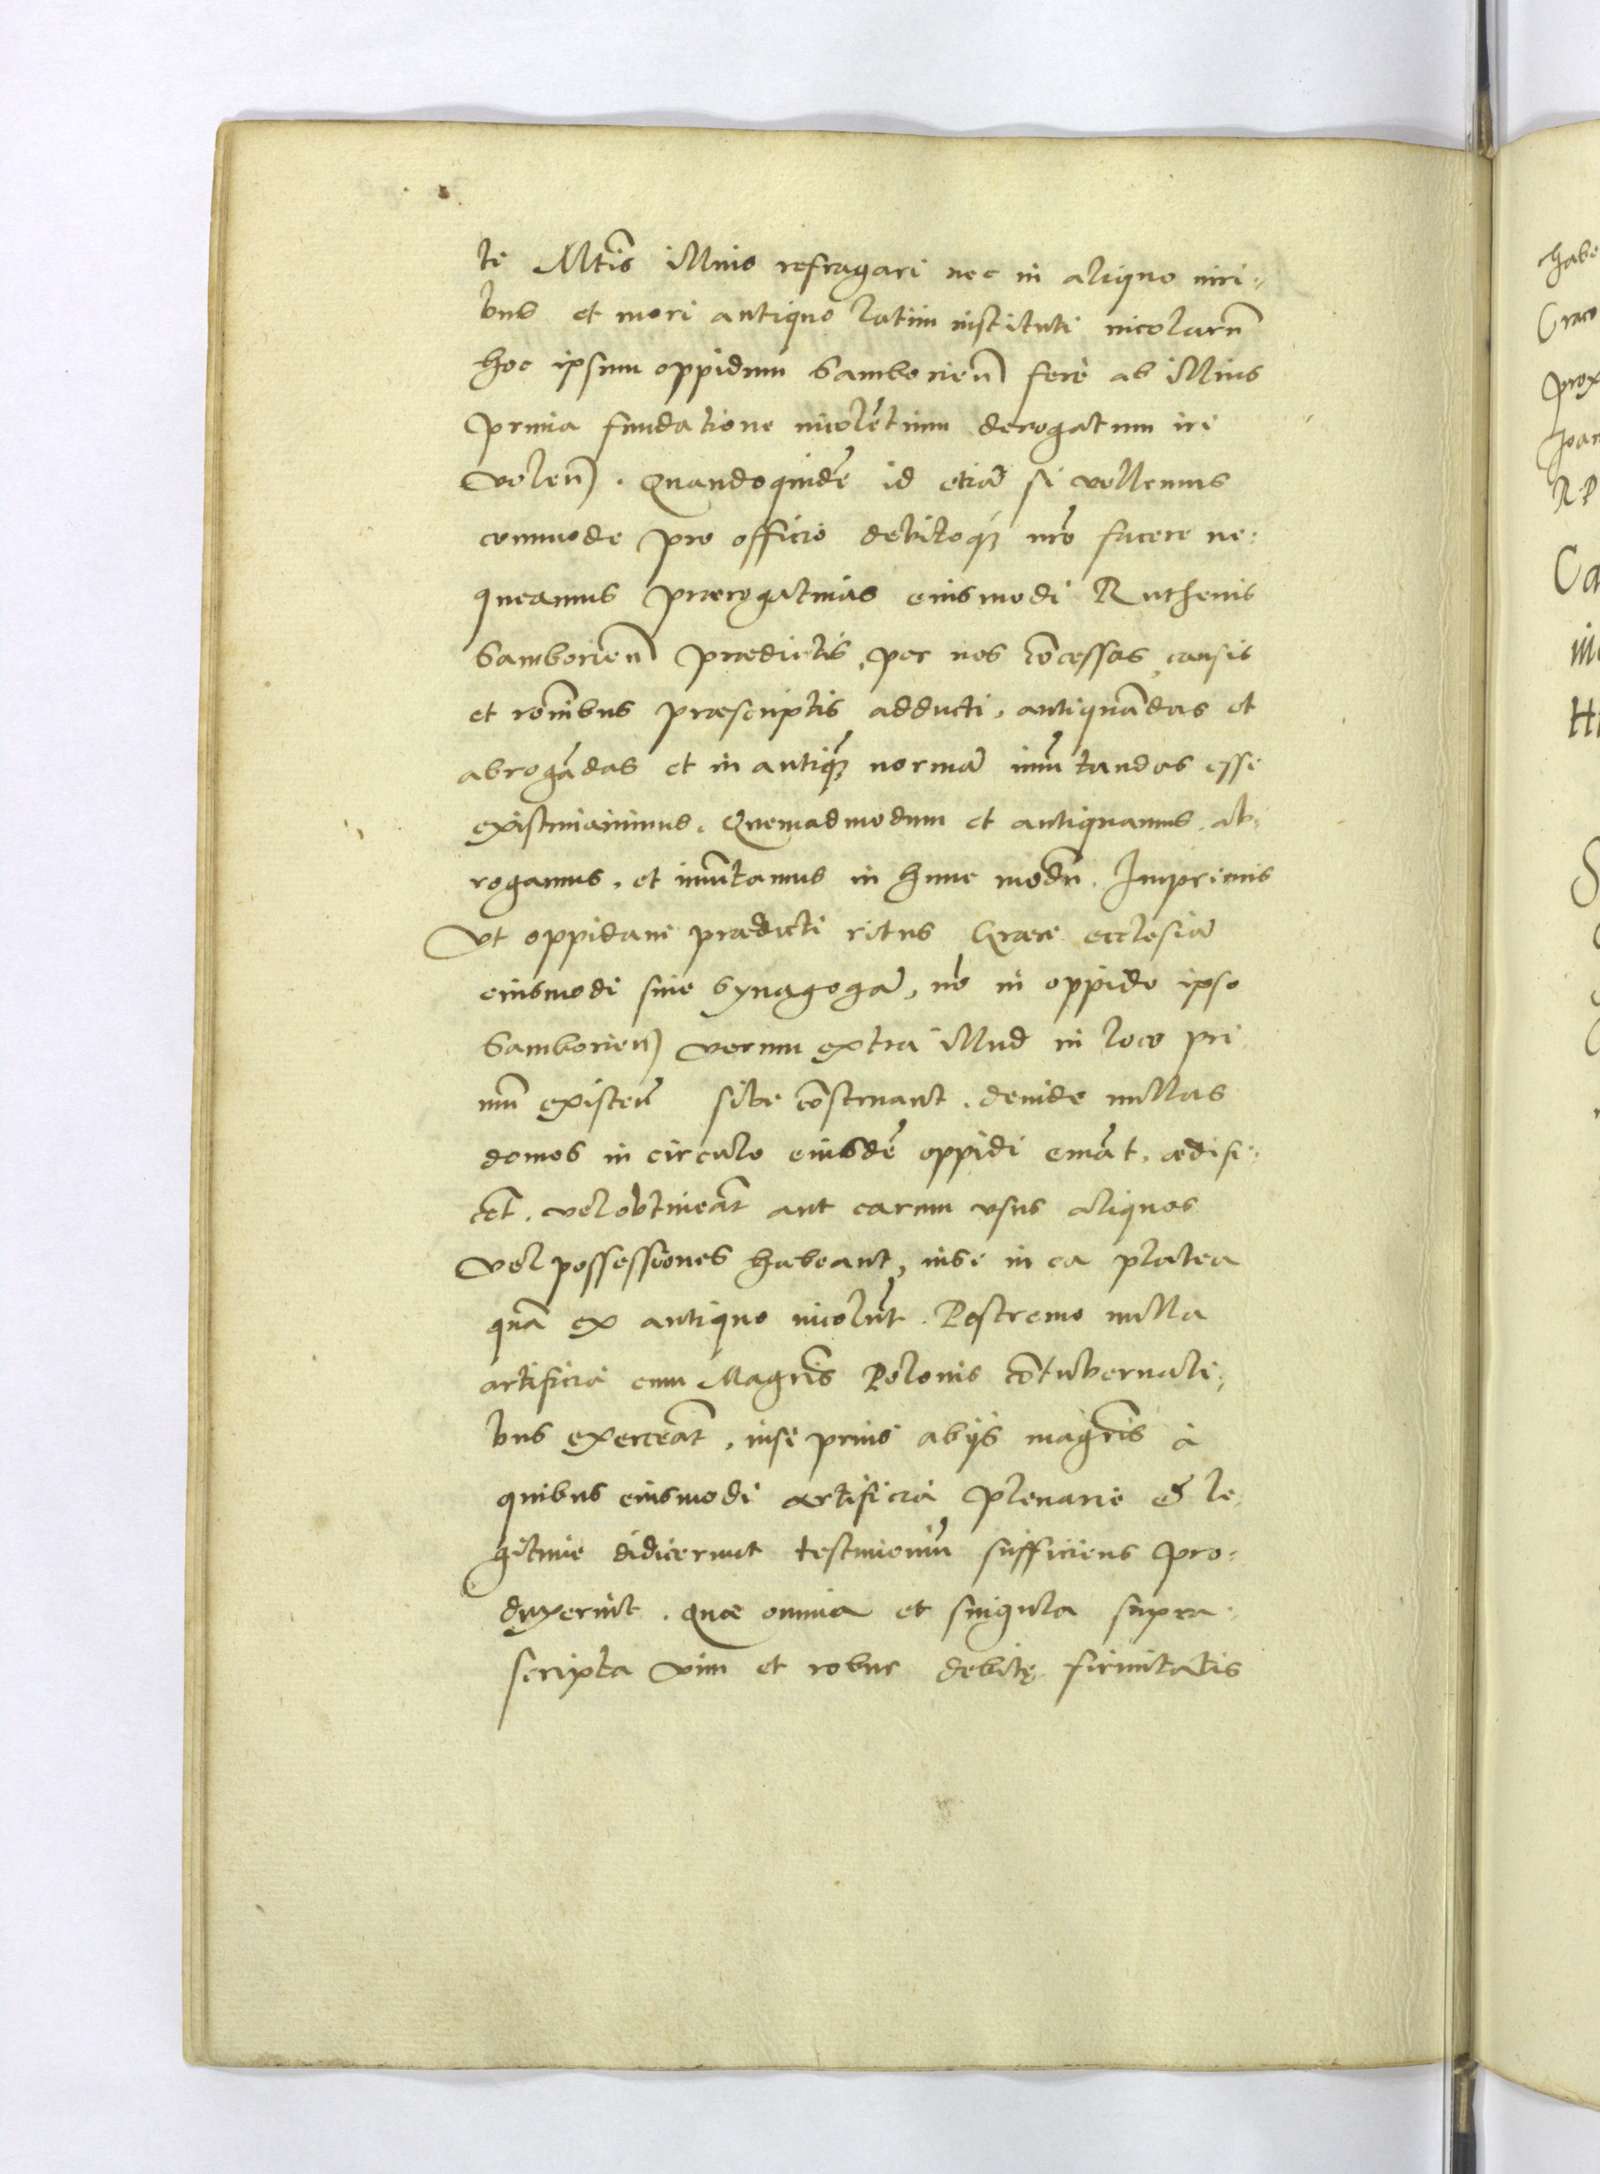 ti Mtis illius refragari nec in aliquo iuri-
bus et mori antiquo latini instituti incolarū
hoc ipsum oppidum Samborien fere ab illius
prima fundatione incolētium derogatum iri
volen. Quandoquidē id etiā si vellemus
commode pro officio debitoq; nro facere ne-
queamus prærogatiuas eiusmodi Ruthenis
Samborien prædictis, per nos cōcessas, causis
et rōnibus præscriptis adducti, antiquādas et
abrogādas et in antiquā normā īmutandas esse
existimauimus. Quemadmodum et antiquamus, ab-
rogamus, et īmutamus in hunc modū. Imprimis
Vt oppidani prædicti ritus Græci ecclesiā
eiusmodi siue Synagogā, nō in oppido ipso
Samborien verum extra illud in loco pri
mū existen̄ sibi cōstruant, deinde nullas
domos in circulo eiusdē oppidi emāt, ædifi-
cēt, vel obtineāt aut earum vsus aliquos
vel possessiones habeant, nisi in ea platea
quā ex antiquo incolūt. Postremo nulla
artificia cum Magrīs Polonis cōtubernali-
bus exerceāt, nisi prius ab ijs magrīs à
quibus eiusmodi artificia plenarie & le-
gitime didicerunt testimoniū sufficiens pro-
duxerint. Quæ omnia et singula supra-
scripta vim et robur debitę firmitatis
habe
Craco
prox
Joan
R P
Ca